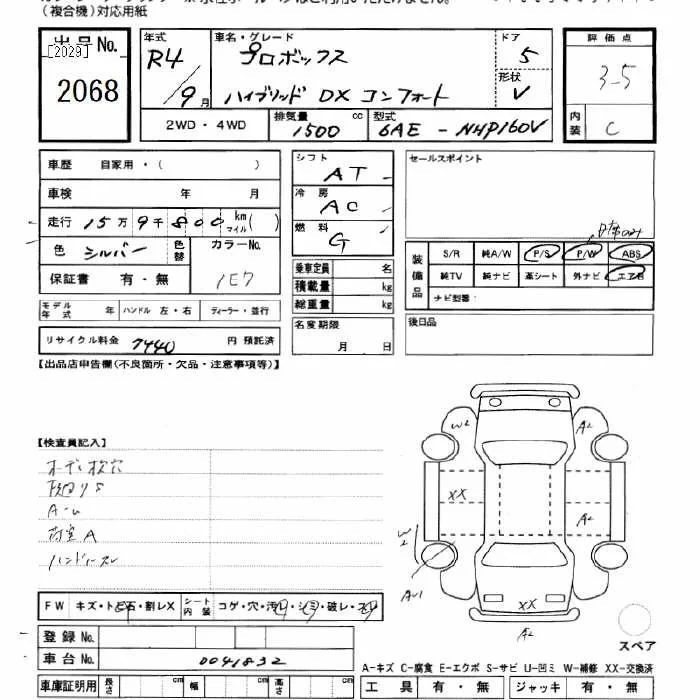 (複合機)対応用紙
出品No.
[2029]
2068
年式 R4/9月
車名・グレード プロボックス
ハイブリッド DX コンフォート
ドア 5
形状 V
評価点
3-5
内装 C
2WD・4WD
排気量 1500 cc
型式 6AE-NHP160V
車歴 自家用・( )
車検 年 月
走行 15万9千800 km マイル( )
色 シルバー 色替 カラーNo. 1E7
保証書 有・無
モデル年式 年 ハンドル 左・右 ディーラー・並行
リサイクル料金 7440 円 預託済
シフト AT
冷房 AC
燃料 G
乗車定員 名
積載量 kg
総重量 kg
名変期限 月 日
セールスポイント
装備品 S/R 純A/W P/S P/W ABS
純TV 純ナビ 革シート 外ナビ エアB
ナビ型番:
後日品
【出品店申告欄(不良箇所・欠品・注意事項等)】
【検査員記入】
荷室A
ハンドルスレ
FW キズ・トビ石・割レX シート内装 コゲ・穴・汚レ・シミ・破レ・スレ
登録No.
車台No. 0041832
車庫証明用 長さ cm 幅 cm 高さ cm
W2
A2
XX
A2
W2
AU1
XX
A2
スペア
A-キズ C-腐食 E-エクボ S-サビ U-凹ミ W-補修 XX-交換済
工具 有・無 ジャッキ 有・無